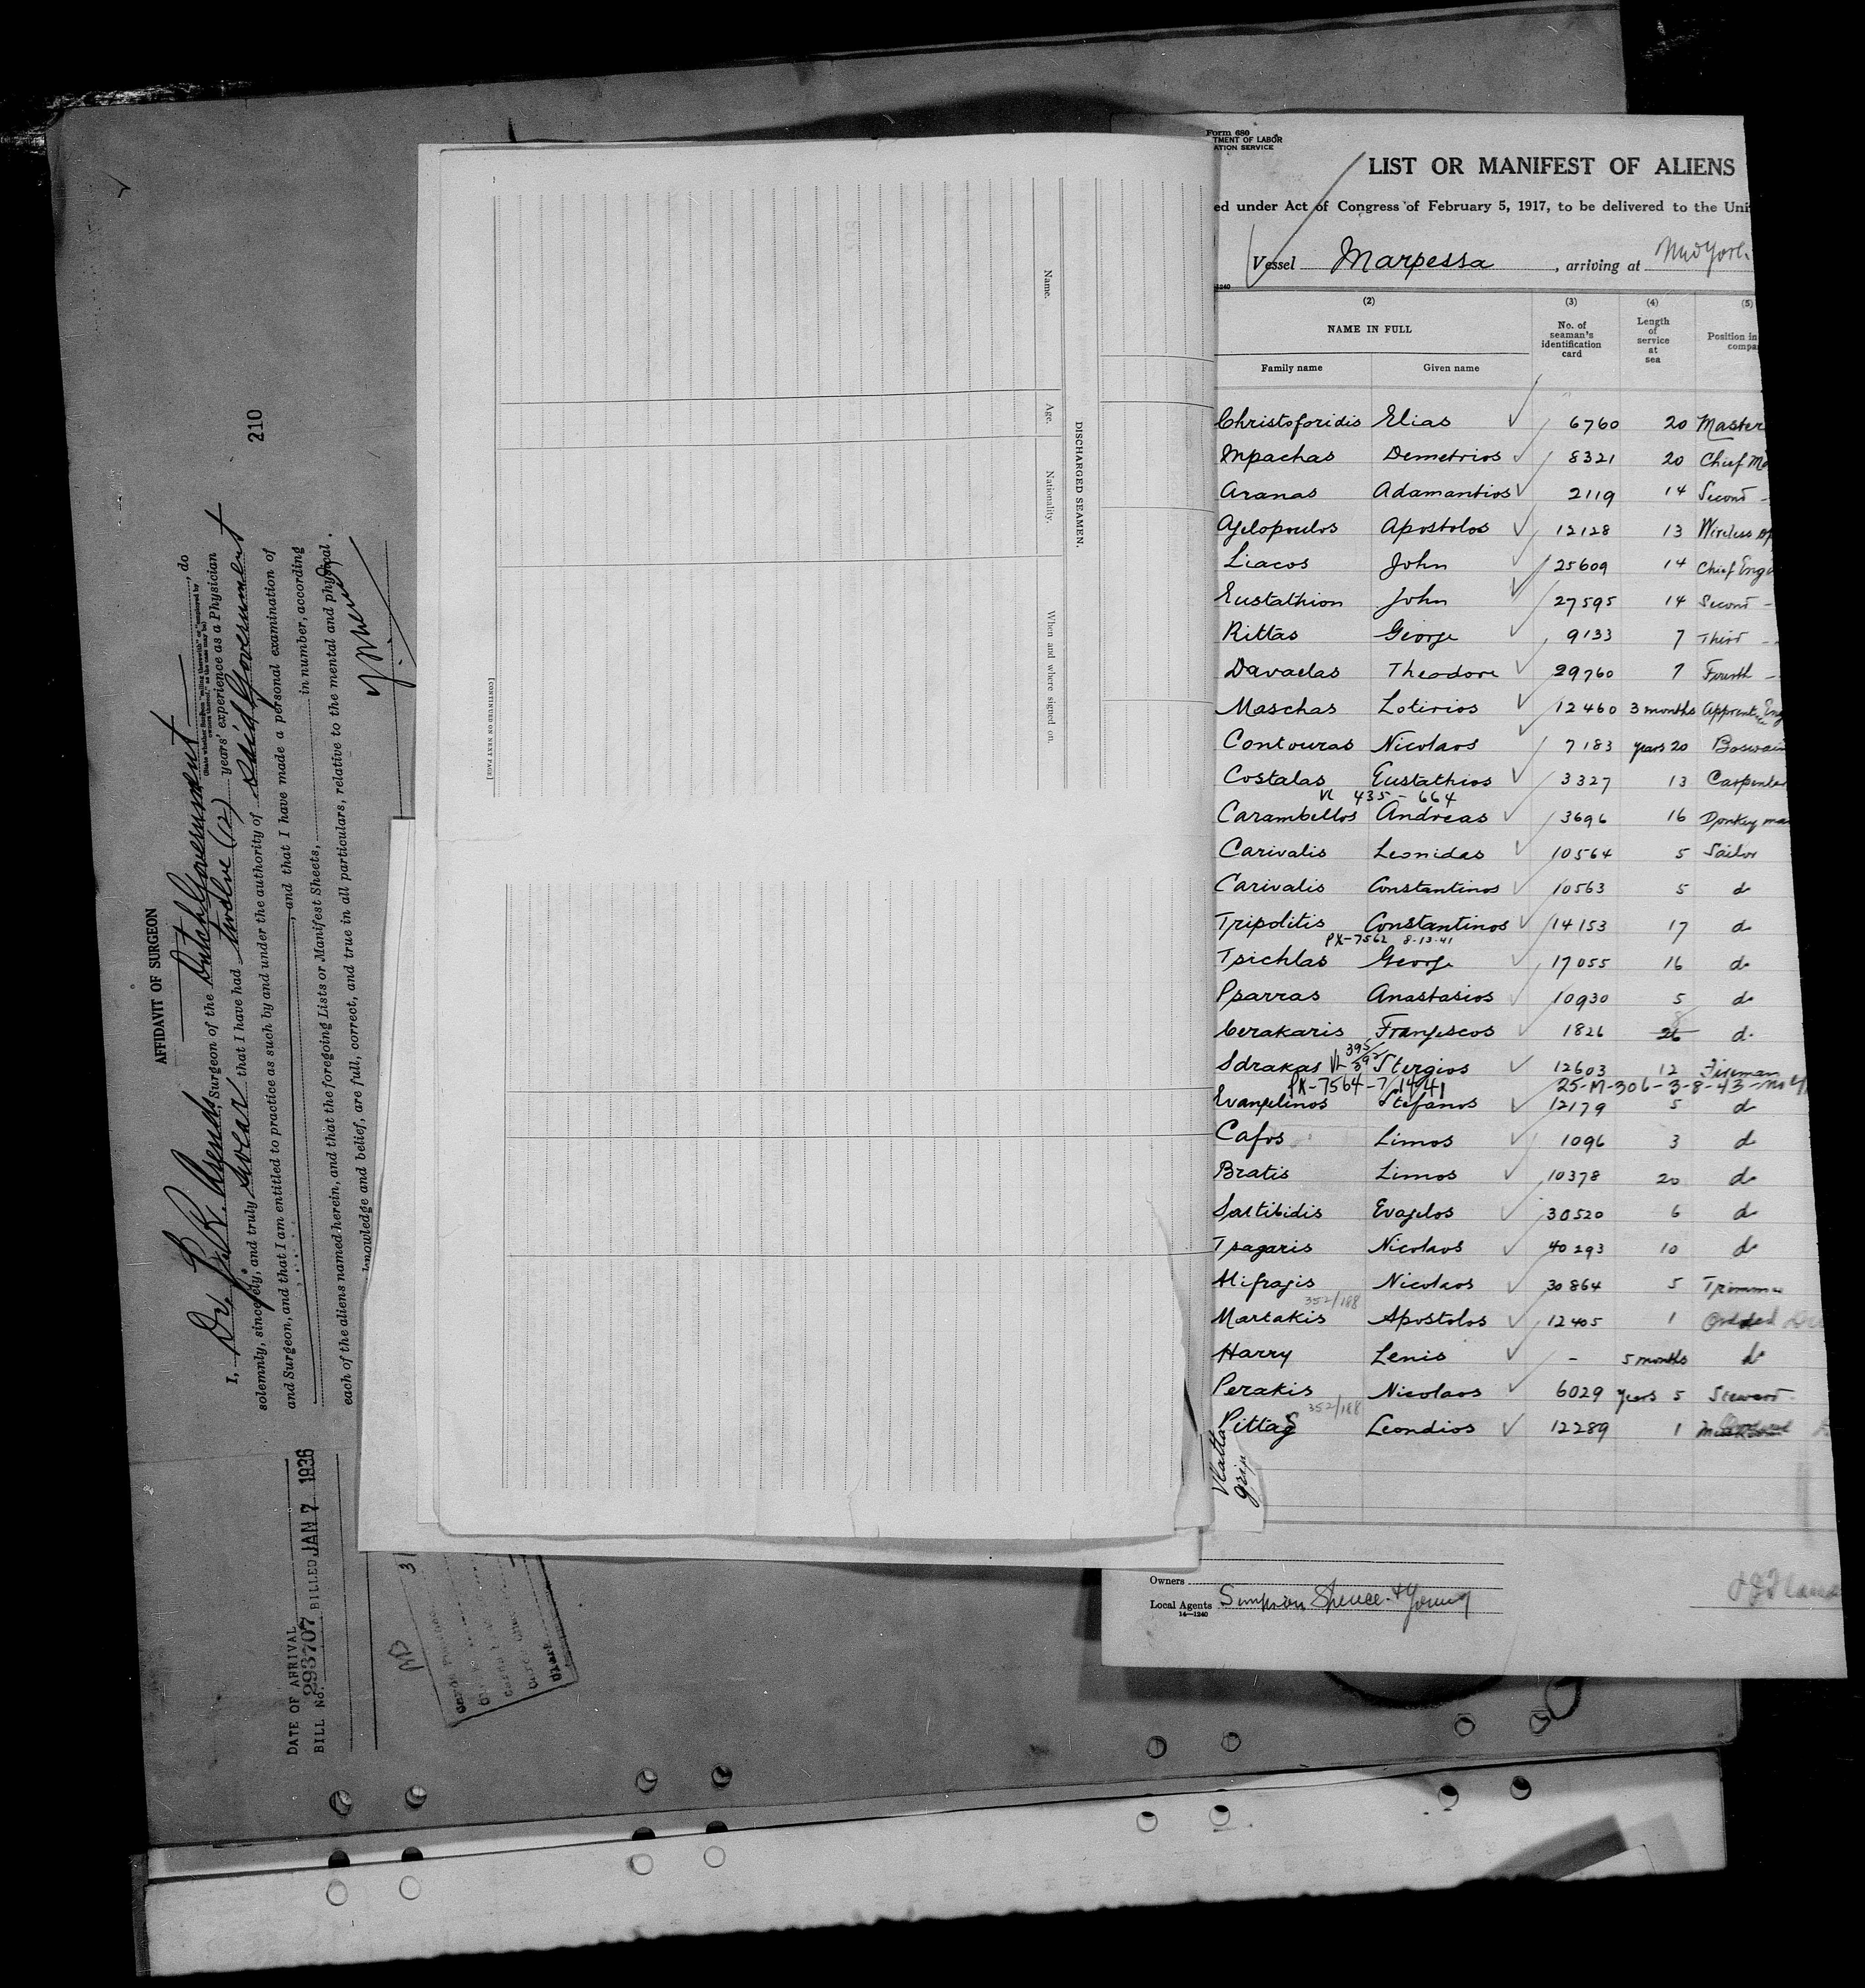 AFFIDAVIT OF SURGEON
I, Dr. , Surgeon of the Dutch Government, do
(State whether Surgeon "sailing therewith" or "employed by owners thereof," as the case may be)
solemnly, sincerely, and truly swear that I have had twelve (12) years' experience as a Physician
and Surgeon, and that I am entitled to practice as such by and under the authority of Said Government
, and that I have made a personal examination of
each of the aliens named herein, and that the foregoing Lists or Manifest Sheets, in number, according
knowledge and belief, are full, correct, and true in all particulars, relative to the mental and physical.
210
DATE OF ARRIVAL
BILL No. 293707 BILLED JAN 7 1936
Name.
Age.
Nationality.
When and where signed on.
DISCHARGED SEAMEN.
[CONTINUED ON NEXT PAGE]
Form 680
TMENT OF LABOR
ATION SERVICE
LIST OR MANIFEST OF ALIENS
ed under Act of Congress of February 5, 1917, to be delivered to the Uni
Vessel Marpessa, arriving at New York
1240
(2) (3) (4) (5)
NAME IN FULL No. of seaman's identification card Length of service at sea Position in compa
Family name Given name
Christoforidis Elias 6760 20 Master
Mpachas Demetrios 8321 20 Chief Ma
Aranas Adamantios 2119 14 Second -
Agelopoulos Apostolos 12128 13 Wireless op
Liacos John 25609 14 Chief Engi
Eustathion John 27595 14 Second -
Rittas George 9133 7 Third -
Davaelas Theodore 29760 7 Fourth -
Maschas Lotirios 12460 3 months Apprentice Eng
Contouras Nicolaos 7183 years 20 Boswain
Costalas Eustathios 3327 13 Carpenter
VL 435-664
Carambellos Andreas 3696 16 Donkey man
Carivalis Leonidas 10564 5 Sailor
Carivalis Constantinos 10563 5 do
Tripolitis Constantinos 14153 17 do
PX-7562 8-13-41
Tsichlas George 17055 16 do
Psarras Anastasios 10930 5 do
Cerakaris Frangiscos 1826 26 do
Sdrakas VL 395/392 Stergios 12603 12 Fireman
PX-7564-7/14/41 25-M-306-3-8-43-
Evangelinos Stefanos 12179 5 do
Cafos Limos 1096 3 do
Bratis Limos 10378 20 do
Saltibidis Evagelos 30520 6 do
Tsagaris Nicolaos 40293 10 do
Alifragis Nicolaos 30864 5 Trimmer
352/188
Martakis Apostolos 12405 1
Harry Lenis - 5 months do
Perakis Nicolaos 6029 years 5 Steward
352/188
Pittas Leondios 12289 1
Owners
Local Agents Simpson Spence & Young
14—1240